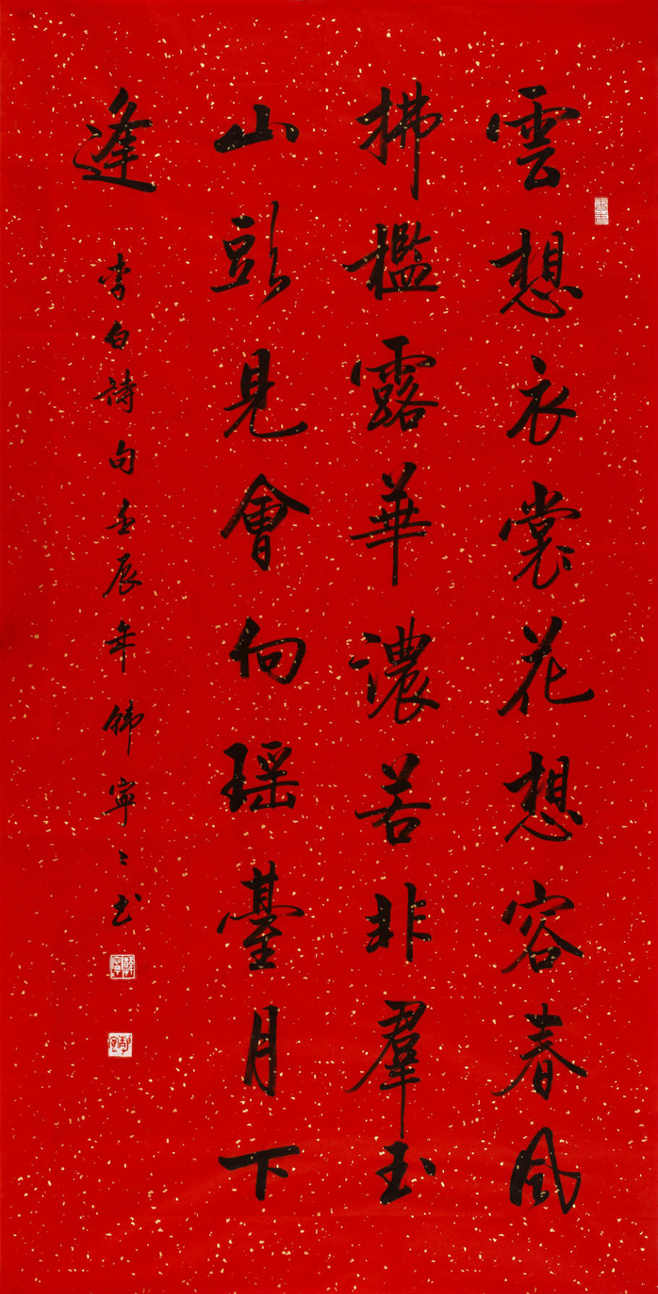 雲想衣裳花想容春風
拂檻露華濃若非羣玉
山頭見會向瑶臺月下
逢
李白詩句壬辰年韩寧々书